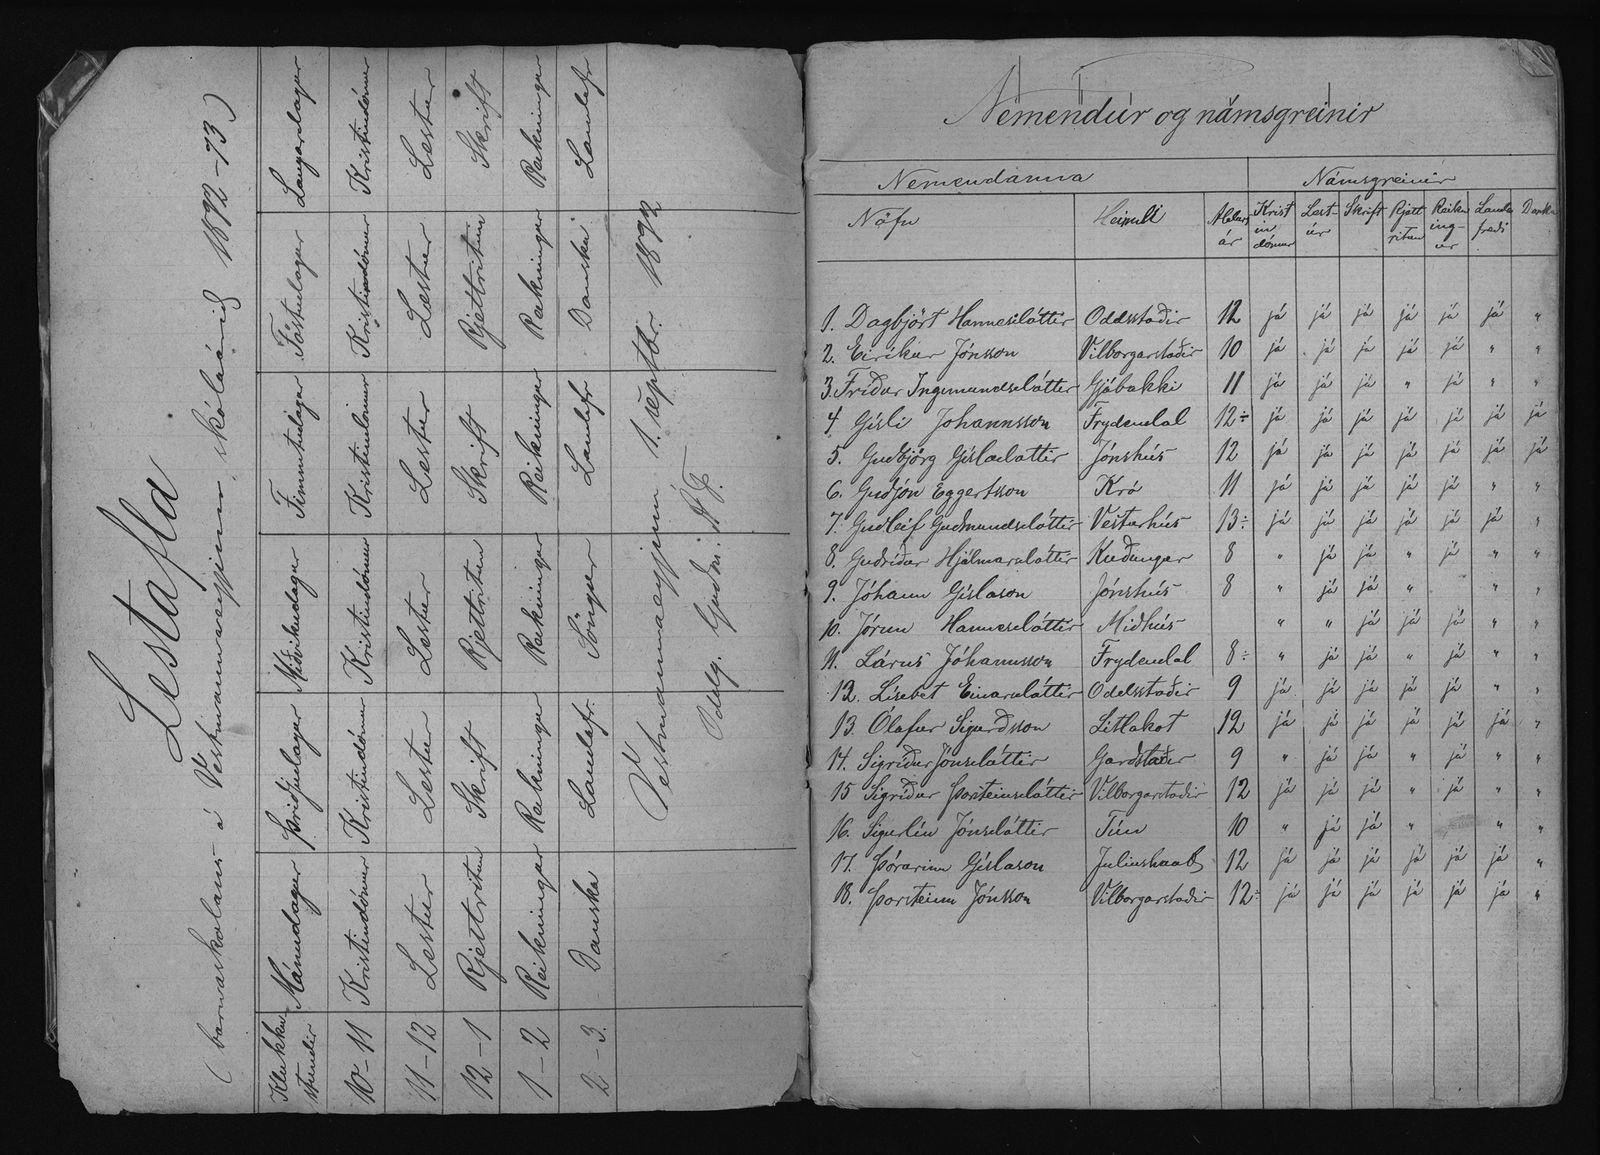 Lestafla
(barnaskolans á Vestmannaeyjum, skólaárið 1892-93)
Klukku stundir Mánudagur Þriðjudagur Miðvikudagur Fimmtudagur Föstudagur Laugardagur
10-11 Kristindómur Kristindómur Kristindómur Kristindómur Kristindómur Kristindómur
11-12 Lestur Lestur Lestur Lestur Lestur Lestur
12-1 Rjettritun Skrift Rjettritun Skrift Rjettritun Skrift
1-2 Reikningur Reikningur Reikningur Reikningur Reikningur Reikningur
2-3. Danska Landafr. Söngur Landafr Danska Landafr
Vestmannaeyjum 1. septbr. 1892
Oddg. Guðm.
Nemendur og námsgreinir
Nemendanna Námsgreinir
Nöfn Heimili Aldurs ár Krist in dómur Lest-ur Skrift Rjett ritun Reikn ing-ur Landa fræði Danska
1. Dagbjört Hannesdóttir Oddsstaðir 12 já já já já já já "
2. Eiríkur Jónsson Vilborgarstaðir 10 já já já já já " "
3. Fríður Ingimundsdóttir Gjábakki 11 já já já " já " "
4 Gísli Johannsson Frydendal 12÷ já já já já já já já
5. Guðbjörg Gísladóttir Jónshús 12 já já já já já já já
6. Guðjón Eggertsson Kró 11 já já já já já " "
7. Guðleif Guðmundsdóttir Vesturhús 13÷ já já já já já já "
8. Guðríður Hjálmarsdóttir Kuðungur 8 " já já " já " "
9. Jóhann Gíslason Jónshús 8 " já já " " "
10. Jórun Hannesdóttir Miðhús " " já já já " "
11. Lárus Jóhannsson Frydendal 8÷ " já já " já " "
12. Lísebet Einarsdóttir Oddsstaðir 9 já já já já já " "
13. Ólafur Sigurðsson Litlakot 12 já já já já já já "
14. Sigríður Jónsdóttir Garðstaðir 9 " já já " já " "
15 Sigríður Þorsteinsdóttir Vilborgarstaðir 12 já já já " já " "
16. Sigurlín Jónsdóttir Tún 10 " já já " " "
17. Þórarinn Gíslason Juliushaab 12 já já já já já já "
18. Þorsteinn Jónsson Vilborgarstaðir 12÷ já já já já já já "